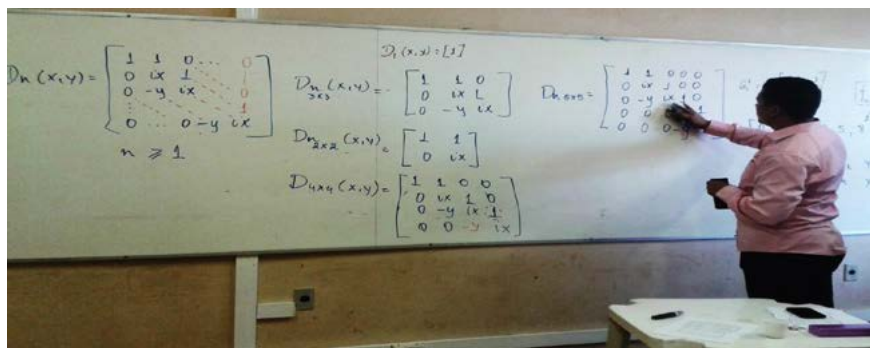 Dn(x,y) =
1 1 0 ... 0
0 ix 1
0 -y ix 0
: 1
0 ... 0 -y ix
n ⩾ 1
D₁(x,y) = [1]
Dn₃ₓ₃(x,y) =
1 1 0
0 ix 1
0 -y ix
Dn₂ₓ₂(x,y) =
1 1
0 ix
D₄ₓ₄(x,y) =
1 1 0 0
0 ix 1 0
0 -y ix 1
0 0 -y ix
Dn₅ₓ₅ =
1 1 0 0 0
0 ix 1 0 0
0 -y ix 1 0
0 0 1
0 0 0 -y